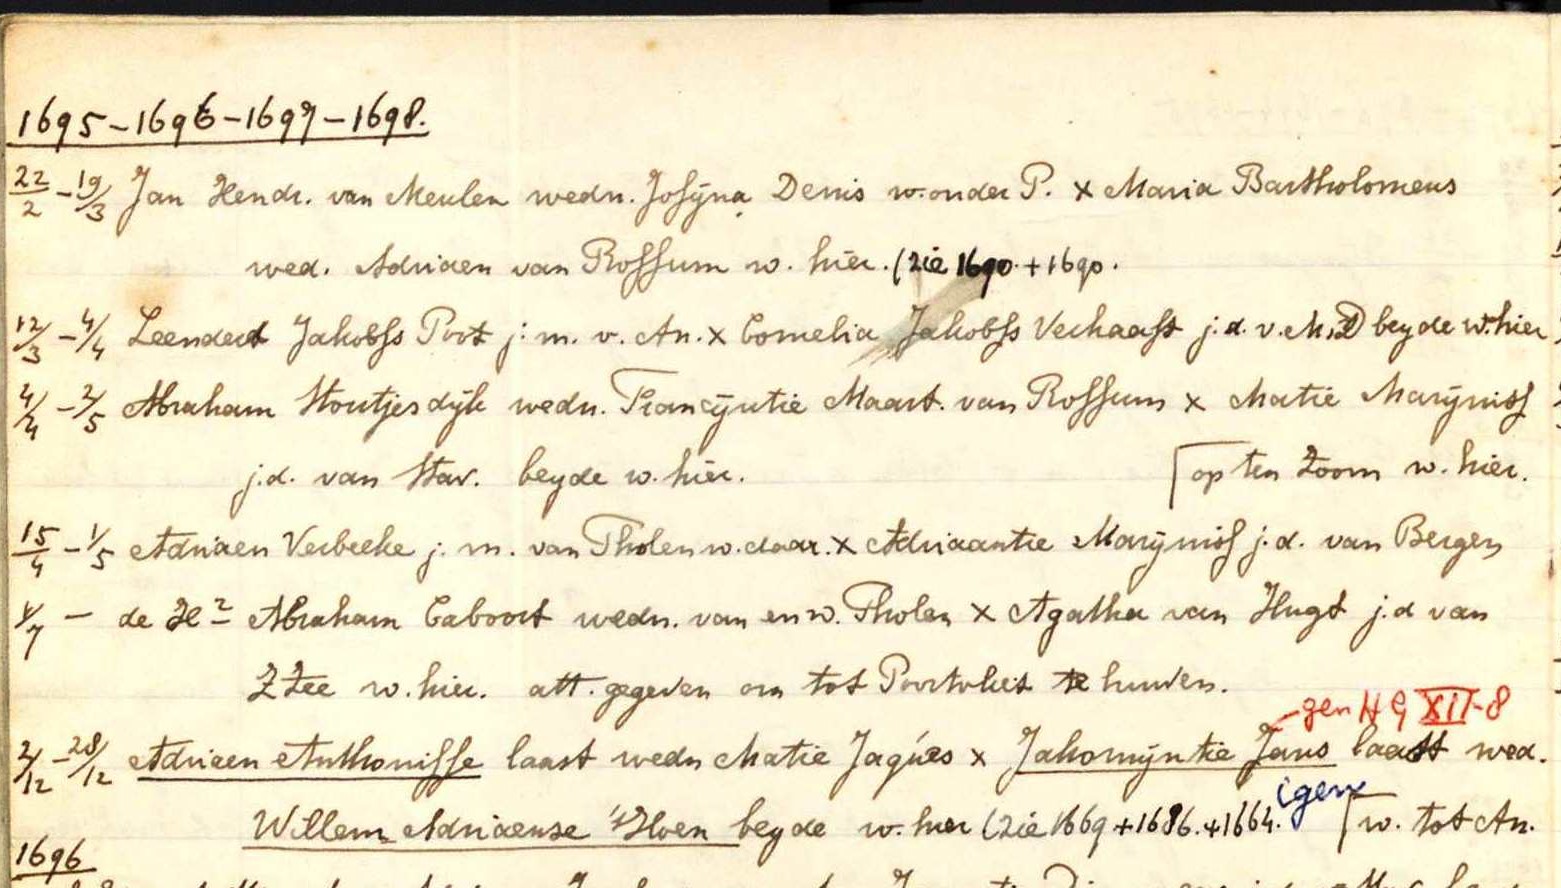 1695-1696-1697-1698.
22/2 - 19/3 Jan Hendr. van Meulen wedn. Josÿna Denis w. onder P. x Maria Bartholomeus
wed. Adriaen van Rossum w. hier. (zie 1690. + 1690.
12/3 - 4/4 Leendert Jakobss Poot j. m. v. An. x Cornelia Jakobss Verhaast j.d. v. M.D beyde w. hier
4/4 - 2/5 Abraham Houtjesdÿk wedn. Francÿntie Maart. van Rossum x Matie Marÿniss
j.d. van Stav. beyde w. hier. [op ten Zoom w. hier.
15/4 - 1/5 Adriaen Verbeeke j. m. van Tholen w. daar. x Adriaantie Marÿniss j. d. van Bergen
/7 - de Hr Abraham Caboort wedn. van en w. Tholen x Agatha van Hugt j.d van
ZZee w. hier. att. gegeven om tot Poortvliet te huwen.
gen HG XII-8
2/12 - 28/12 Adriaen Anthonisse laast wedn Matie Jaqúes x Jakomÿntie Jans laast wed.
igenx
Willem Adriaense 't Hoen beyde w. hier (zie 1669 + 1686. + 1664. [w. tot An.
1696